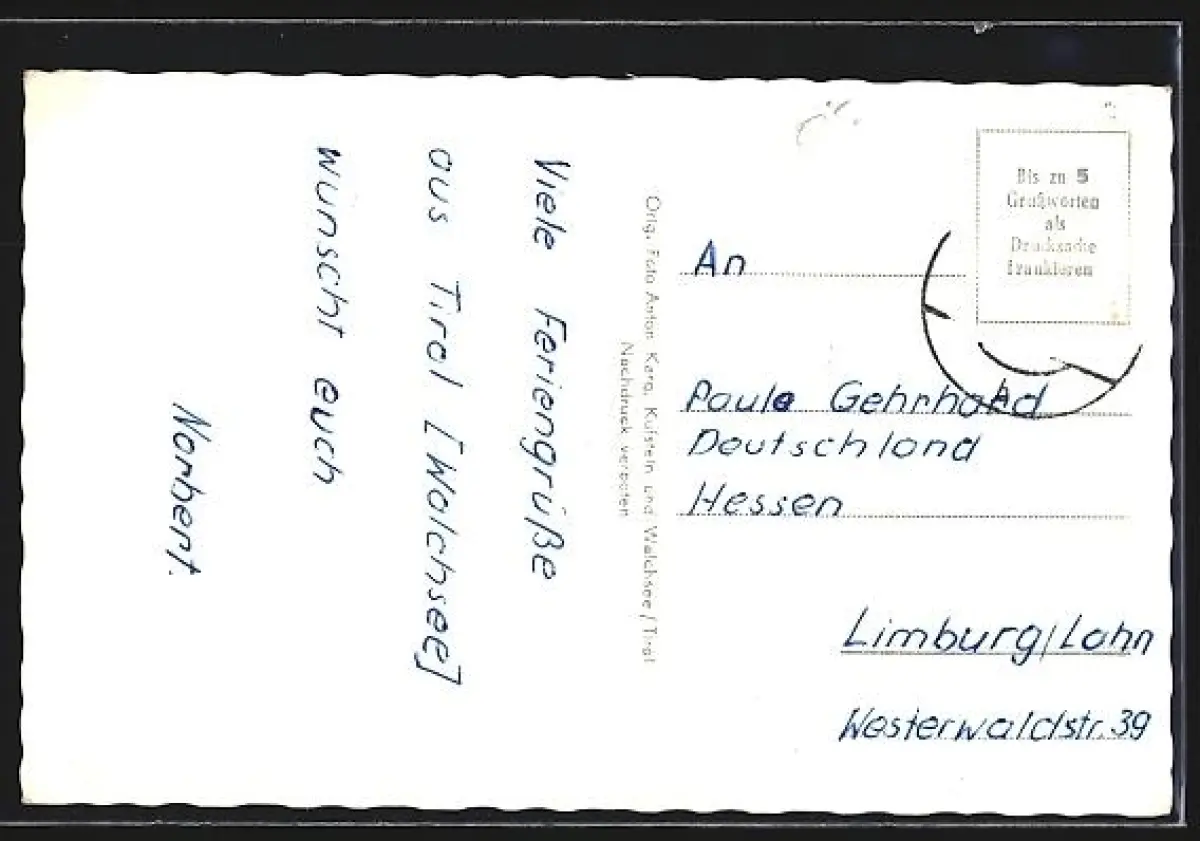 Viele Feriengrüße
aus Tirol [Walchsee]
wünscht euch
Norbert.
Orig. Foto Anton Karg, Kufstein und Walchsee / Tirol
Nachdruck verboten
Bis zu 5
Grußworten
als
Drucksache
frankieren
An
Paula Gehrhard
Deutschland
Hessen
Limburg/Lahn
Westerwaldstr. 39